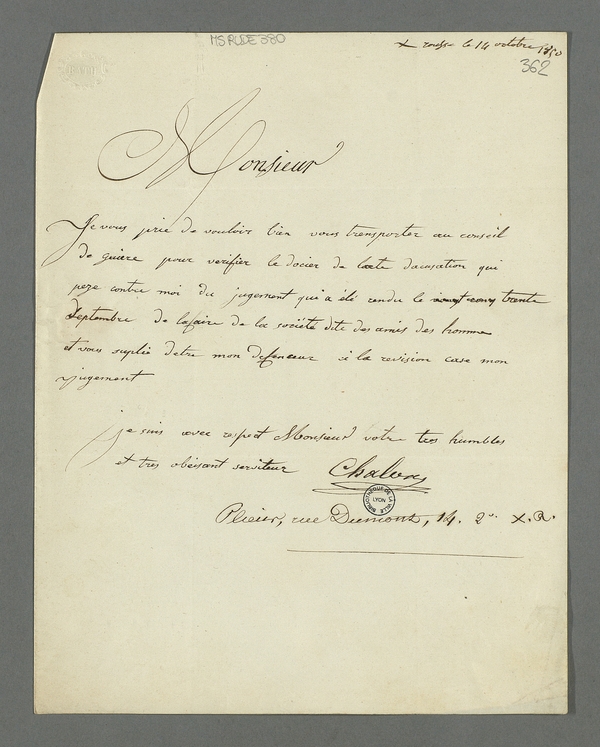 MS RUDE 380
X rousse le 14 octobre 1850
362
Monsieur
Je vous prie de vouloir bien vous transporter au conseil
de guière pour verifier le docier de lacte dacusation qui
peze contre moi du jugement qui a été rendu le trente
Septembre de lafaire de la société dite des amis des homme
et vous suplie detre mon defenceur si la revision case mon
jugement
je suis avec respect Monsieur votre tres humbles
et tres obeisant serviteur Chalory
BIBLIOTHEQUE DE LA VILLE LYON
Plieur, rue Dumont, 14. 2e. X. R.